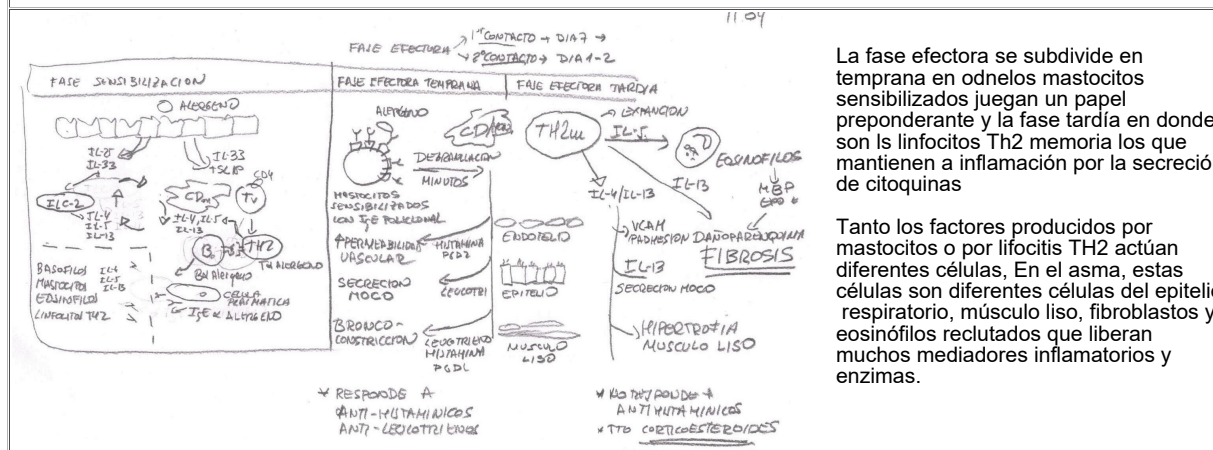 11 04
FASE EFECTORA
1er CONTACTO → DIA 7 →
2º CONTACTO → DIA 1-2
FASE SENSIBILIZACION
ALERGENO
IL-33
IL-33
+ SLIP
CD4
ILC-2
CDm
TV
IL-4
IL-5
IL-13
IL-4, IL-5
IL-13
B
TH2
Bα Alergeno
Tα ALERGENO
BASOFILOS IL-4
MASTOCITOS IL-5
EOSINOFILOS IL-13
LINFOCITOS TH2
CELULA PLASMATICA
IgE α ALERGENO
FASE EFECTORA TEMPRANA
ALERGENO
DEGRANULACION
MINUTOS
MASTOCITOS
SENSIBILIZADOS
CON IgE POLICLONAL
↑PERMEABILIDAD
VASCULAR
HISTAMINA
PGD2
ENDOTELIO
SECRECION
MOCO
LEUCOTRI
EPITELIO
BRONCO-
CONSTRICCION
LEUCOTRIENO
HISTAMINA
MUSCULO
LISO
* RESPONDE A
ANTI-HISTAMINICOS
ANTI-LEUCOTRIENOS
FASE EFECTORA TARDIA
TH2m
EXPANCION
IL-5
EOSINOFILOS
MBP
EPO
IL-4/IL-13
IL-13
VCAM
ADHESION
DAÑO PARENQUIMA
FIBROSIS
IL-13
SECRECION MOCO
HIPERTROFIA
MUSCULO LISO
* NO RESPONDE A
ANTIHISTAMINICOS
* TTO CORTICOESTEROIDES
La fase efectora se subdivide en
temprana en odnelos mastocitos
sensibilizados juegan un papel
preponderante y la fase tardía en donde
son ls linfocitos Th2 memoria los que
mantienen a inflamación por la secreció
de citoquinas
Tanto los factores producidos por
mastocitos o por lifocitis TH2 actúan
diferentes células, En el asma, estas
células son diferentes células del epitelio
respiratorio, músculo liso, fibroblastos y
eosinófilos reclutados que liberan
muchos mediadores inflamatorios y
enzimas.